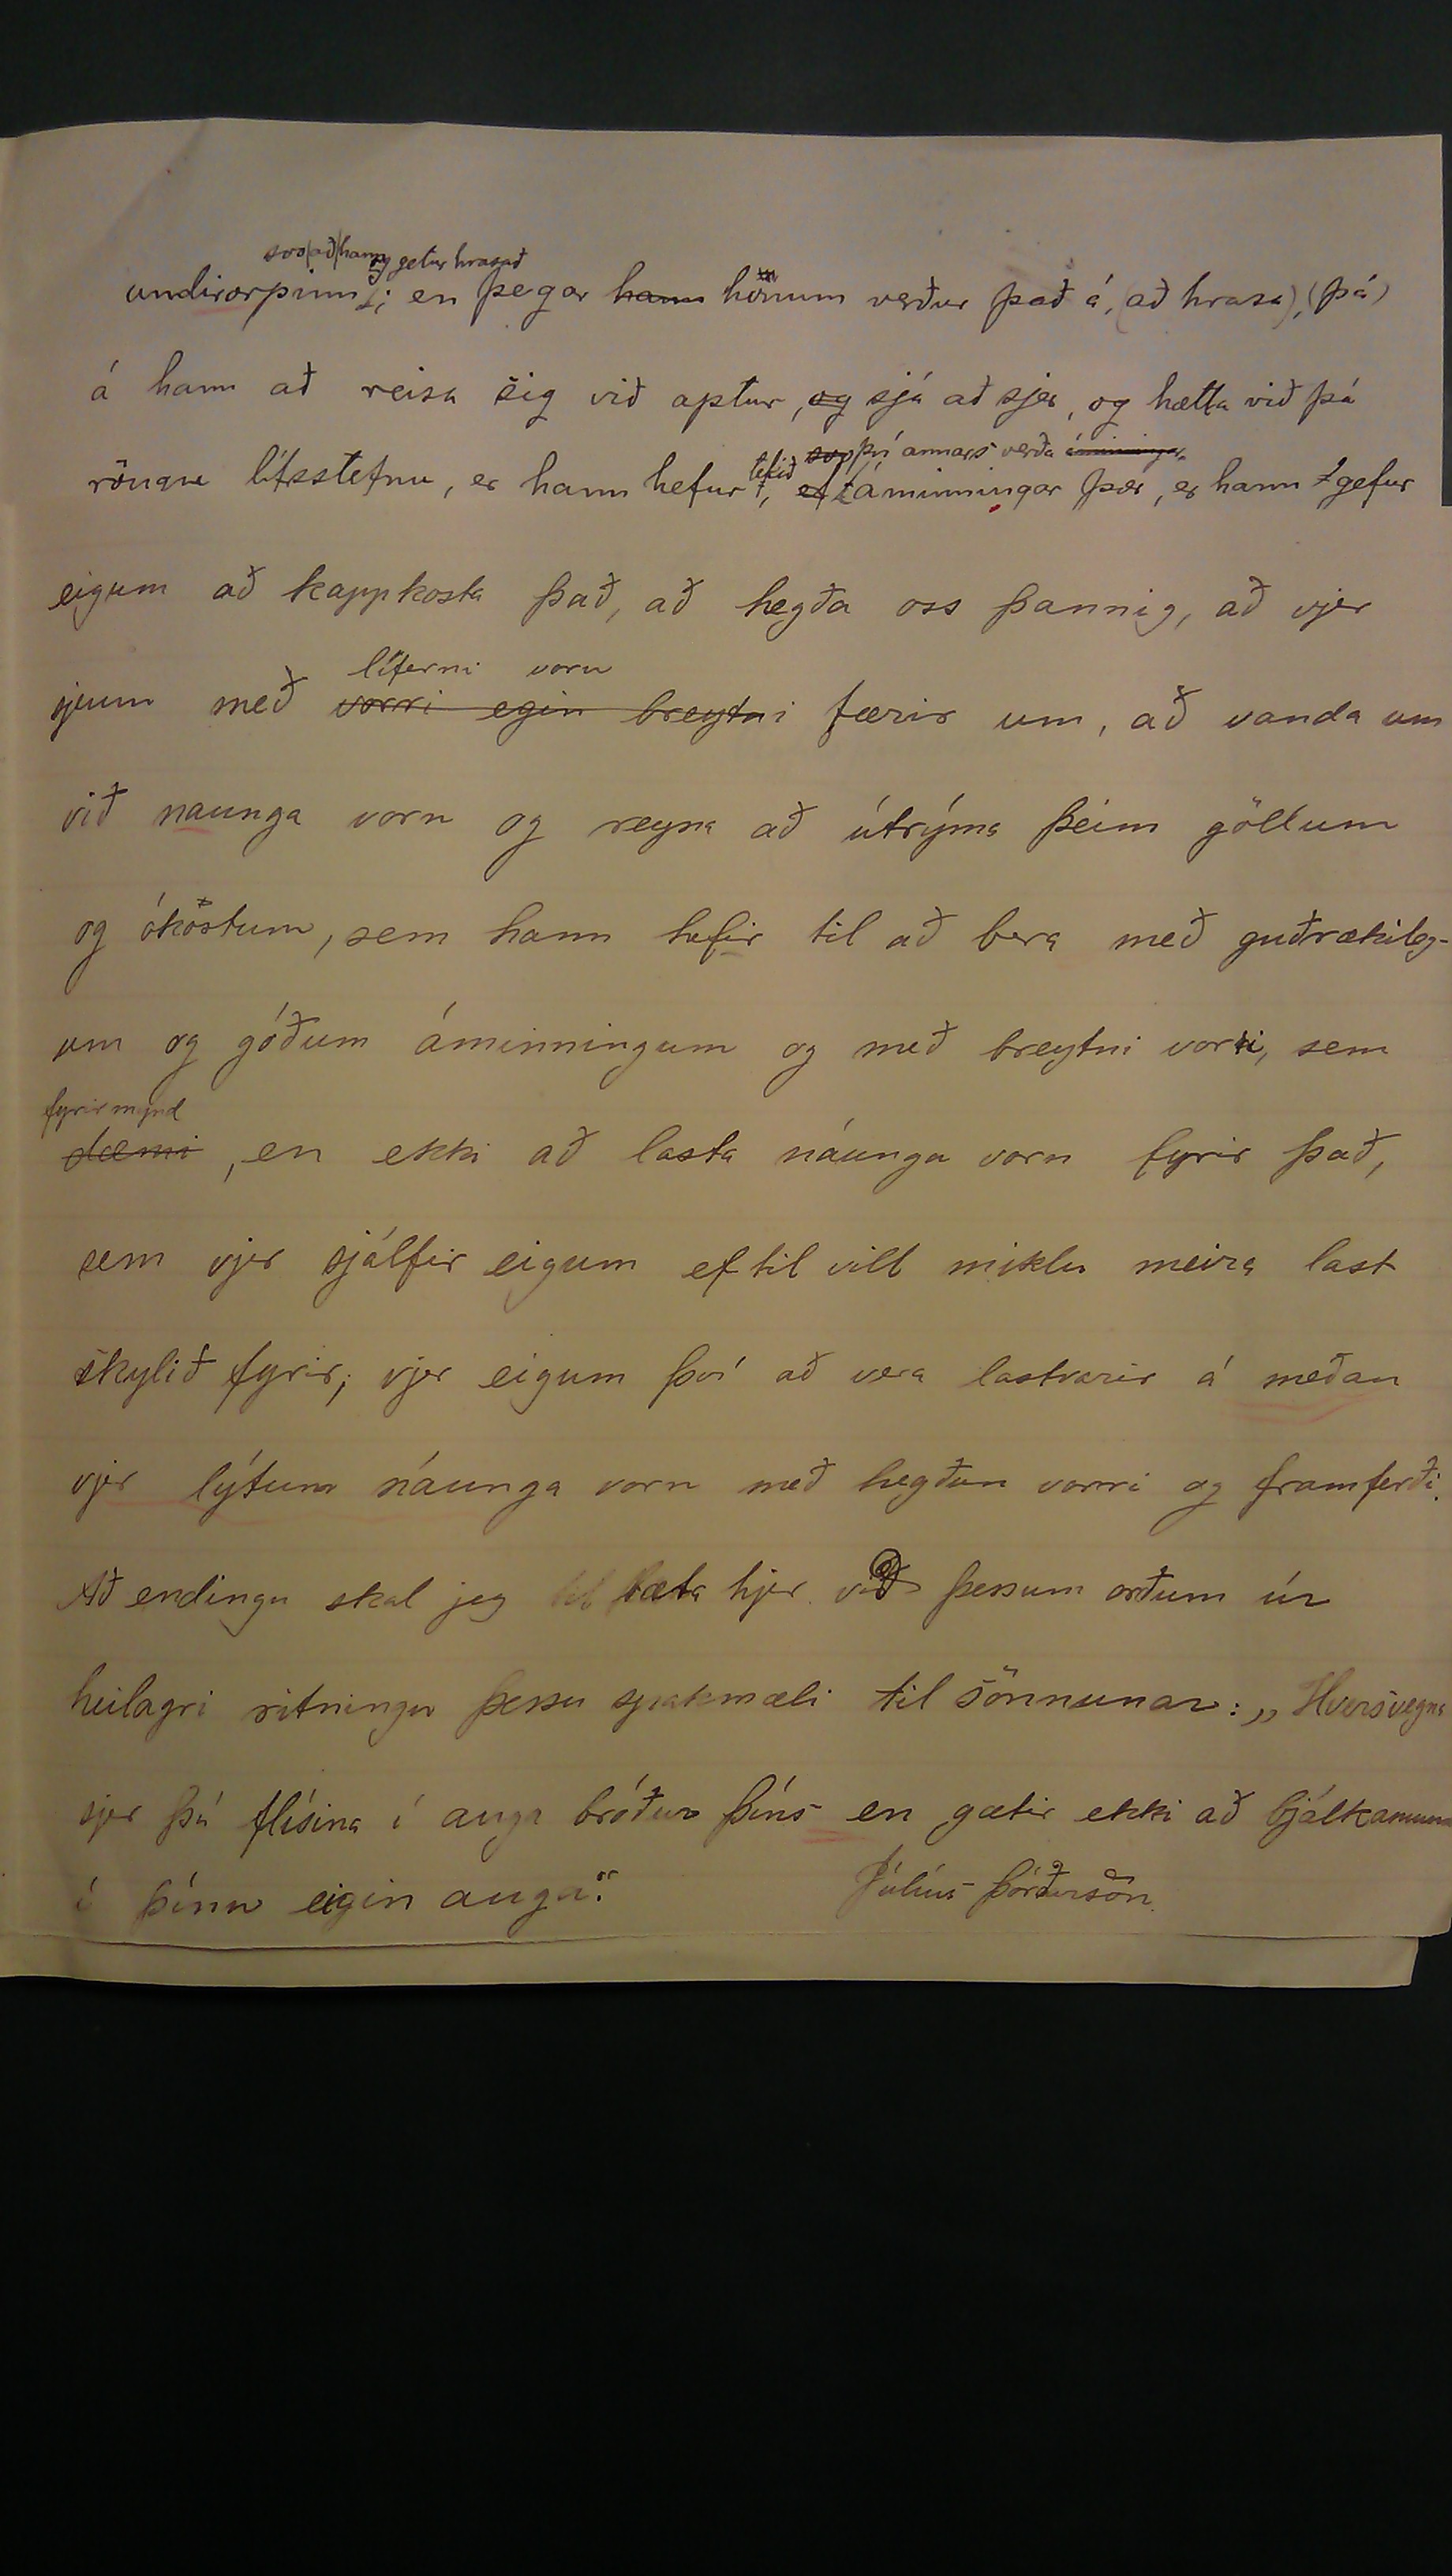 svo að hann getur hrasað
undirorpinn; en þegar hann hönum verður það á, (að hrasa), (þá)
á hann að reisa sig við aptur, og sjá að sjer, og hætta við þá
tekið svo því annars verða áminningar
röngu lífsstefnu, er hann hefur, ef áminningar þær, er hann gefur
eigum að kappkosta það, að hegða oss þannig, að vjer
líferni voru
sjeum með vorri egin breytni færir um, að vanda um
við naunga vorn og reyna að útrýma þeim göllum
og óköstum, sem hann hefir til að bera með guðrækileg-
um og góðum áminningum og með breytni vorri, sem
fyrirmynd
dæmi, en ekki að lasta náunga vorn fyrir það,
sem vjer sjálfir eigum ef til vill miklu meira last
skylið fyrir; vjer eigum því að vera lastvarir á meðan
vjer lýtum náunga vorn með hegðun vorri og framferði.
Að endingu skal jeg bæta hjer við þessum orðum úr
heilagri ritningu þessu spakmæli til sönnunar: „Hversvegna
sjer þú flísina í auga bróður þíns en gætir ekki að bjálkanum
í þínu eigin auga“. Júlíus Þórðarson.